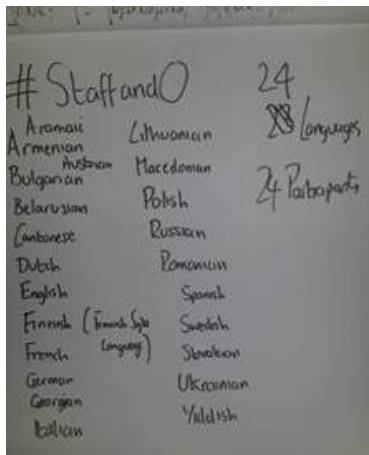 #StaffandO
24
Languages
24 Participants
Aramaic
Armenian
Austrian
Bulgarian
Belarusian
Cantonese
Dutch
English
Finnish (Finnish Sign
Language)
French
German
Georgian
Italian
Lithuanian
Macedonian
Polish
Russian
Romanian
Spanish
Swedish
Slovakian
Ukrainian
Yiddish